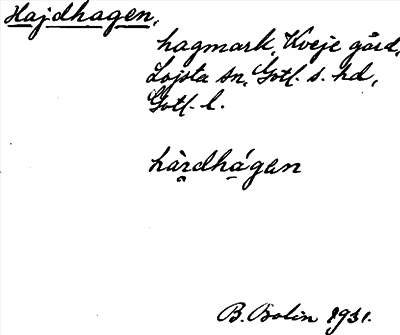 Hajdhagen,
hagmark, Kveje gård,
Lojsta sn, Gotl. s. hd,
Gotl. l.
hàrdhágen
B. Bolin 1931.